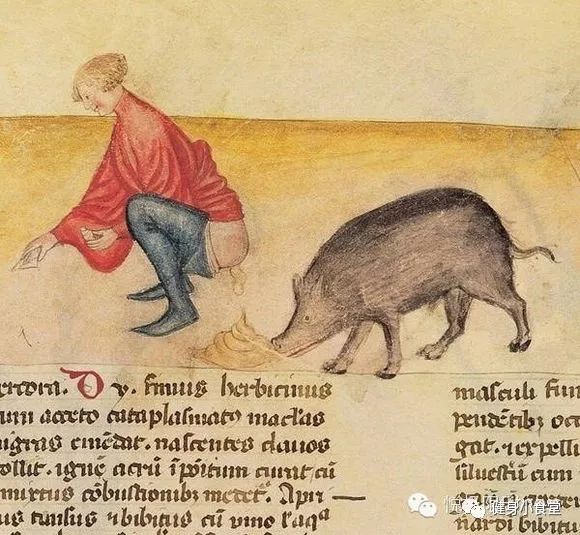 ercora. D y. fimus herbicinius
um aceto cataplasmato maclas
nigras emēdat. nascentes clauos
ollit. ignē acrū īpōitum curat, cū
mixtus cōbustionibz medet. Apri
us tunsus & bibitus cū vino l aqᵃ
masculi fim
pendētibz oc
gat. & expelli
siluestrū cum
nardi bibitu
健身小食堂